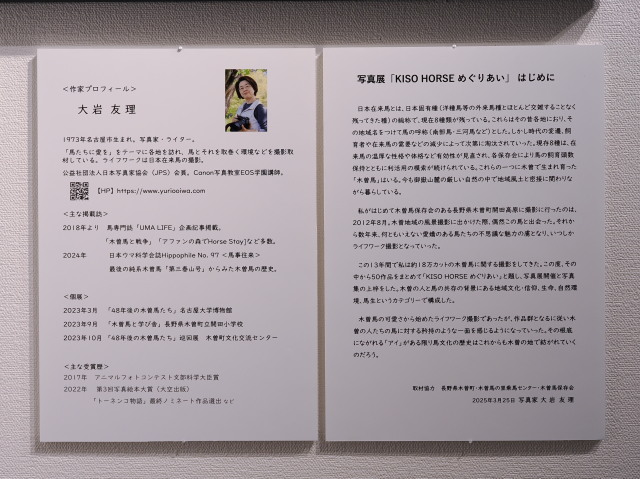 <作家プロフィール>
大岩 友理
1973年名古屋市生まれ。写真家・ライター。
「馬たちに愛を」をテーマに各地を訪れ、馬とそれを取巻く環境などを撮影取
材している。ライフワークは日本在来馬の撮影。
公益社団法人日本写真家協会（JPS）会員。Canon写真教室EOS学園講師。
【HP】https://www.yuriooiwa.com
<主な掲載誌>
2018年より 馬専門誌「UMA LIFE」企画記事掲載。
「木曽馬と戦争」「アファンの森でHorse Stay」など多数。
2024年 日本ウマ科学会誌Hippophile No.97 <馬事往来>
最後の純系木曽馬「第三春山号」からみた木曽馬の歴史。
<個展>
2023年3月 「48年後の木曽馬たち」名古屋大学博物館
2023年9月 「木曽馬と学び舎」長野県木曽町立開田小学校
2023年10月 「48年後の木曽馬たち」巡回展 木曽町文化交流センター
<主な受賞歴>
2017年 アニマルフォトコンテスト文部科学大臣賞
2022年 第3回写真絵本大賞（大空出版）
「トーネンコ物語」最終ノミネート作品選出 など
写真展「KISO HORSE めぐりあい」 はじめに
日本在来馬とは、日本固有種（洋種馬等の外来馬種とほとんど交雑することなく
残ってきた種）の総称で、現在8種類が残っている。これらはその昔各地におり、そ
の地域名をつけて馬の呼称（南部馬・三河馬など）とした。しかし時代の変遷、飼
育者や在来馬の需要などの減少によって次第に淘汰されていった。現存8種は、在
来馬の温厚な性格や体格など有効性が見直され、各保存会により馬の飼育頭数
保持とともに利活用の模索が続けられている。これらの一つに木曽で生まれ育った
「木曽馬」はいる。今も御嶽山麓の厳しい自然の中で地域風土と密接に関わりな
がら暮らしている。
私がはじめて木曽馬保存会のある長野県木曽町開田高原に撮影に行ったのは、
2012年8月。木曽地域の風景撮影に出かけた際、偶然この馬と出会った。それか
ら数年来、何ともいえない愛嬌のある馬たちの不思議な魅力の虜となり、いつしか
ライフワーク撮影となっていった。
この13年間で私は約18万カットの木曽馬に関する撮影をしてきた。この度、その
中から50作品をまとめて「KISO HORSE めぐりあい」と題し、写真展開催と写真
集の上梓をした。木曽の人と馬の共存の背景にある地域文化・信仰、生命、自然環
境、馬生というカテゴリーで構成した。
木曽馬の可愛さから始めたライフワーク撮影であったが、作品群となるに従い木
曽の人たちの馬に対する矜持のような一面を感じるようになっていった。その根底
にながれる「アイ」がある限り馬文化の歴史はこれからも木曽の地で紡がれていく
のだろう。
取材協力 長野県木曽町・木曽馬の里乗馬センター・木曽馬保存会
2025年3月25日 写真家 大岩 友理